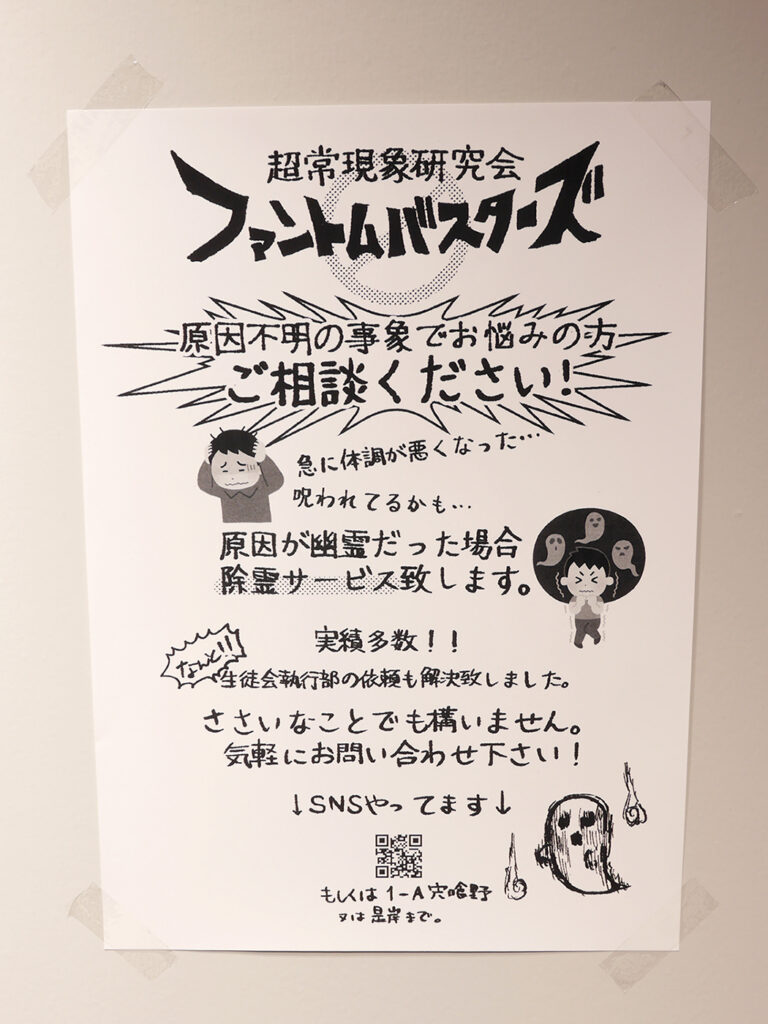 超常現象研究会
ファントムバスターズ
原因不明の事象でお悩みの方
ご相談ください!
急に体調が悪くなった…
呪われてるかも…
原因が幽霊だった場合
除霊サービス致します。
実績多数!!
なんと!!
生徒会執行部の依頼も解決致しました。
ささいなことでも構いません。
気軽にお問い合わせ下さい!
↓SNSやってます↓
もしくは 1-A 穴喰野
又は是岸まで。